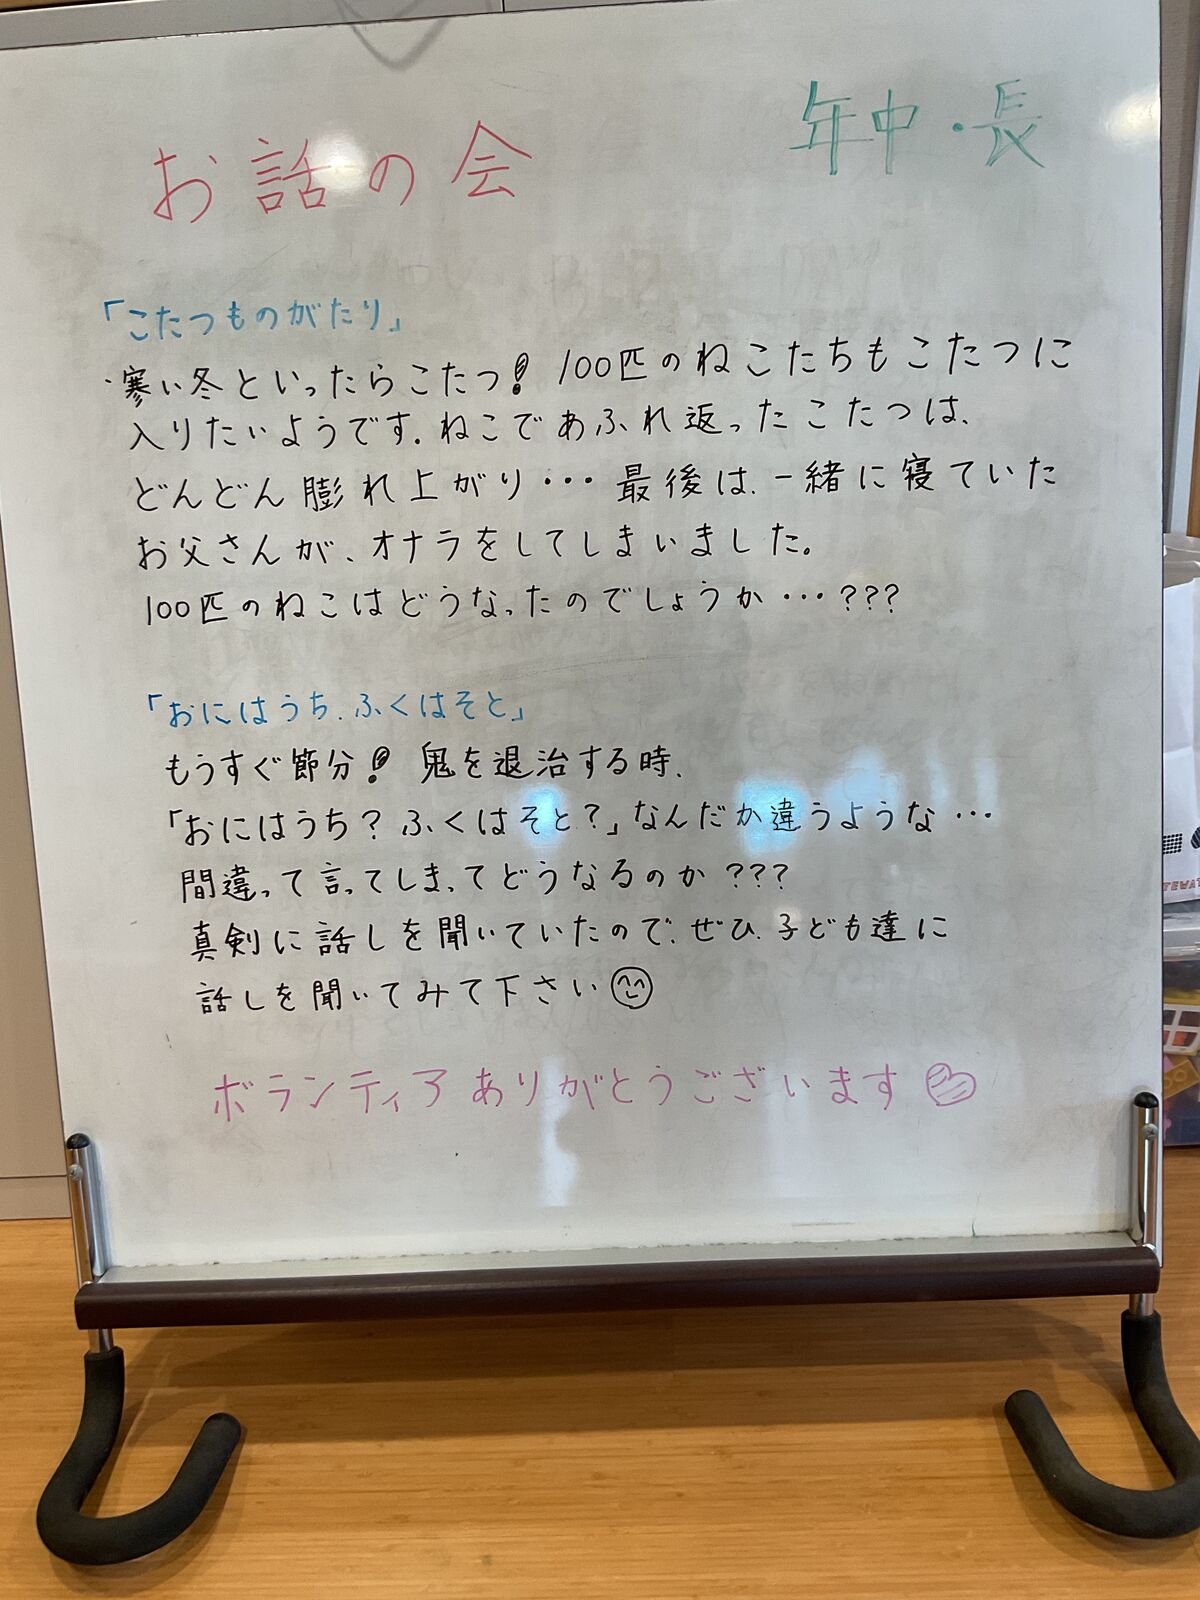 お話の会
年中・長
「こたつものがたり」
・寒い冬といったらこたつ! 100匹のねこたちもこたつに
入りたいようです。ねこであふれ返ったこたつは、
どんどん膨れ上がり・・・最後は、一緒に寝ていた
お父さんが、オナラをしてしまいました。
100匹のねこはどうなったのでしょうか・・・???
「おにはうち、ふくはそと」
もうすぐ節分! 鬼を退治する時、
「おにはうち?ふくはそと?」なんだか違うような・・・
間違って言ってしまってどうなるのか???
真剣に話しを聞いていたので、ぜひ、子ども達に
話しを聞いてみて下さい
ボランティアありがとうございます